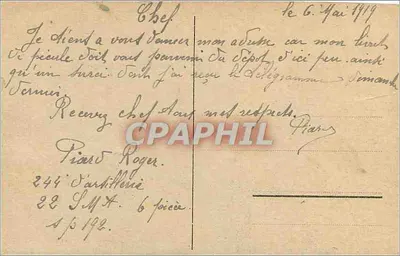 Chef
le 6 Mai 1919
Je tiens a vous donner mon adresse car mon livret
de pécule doit vous parvenir du dépôt d'ici peu ainsi
qu'un dont j'ai reçu le télégramme dimanche
dernier.
Recevez chef tous mes respects.
Piard
CPAPHIL
Piard Roger.
244e d'artillerie
22 SMA. 6 pièce
s p 192.